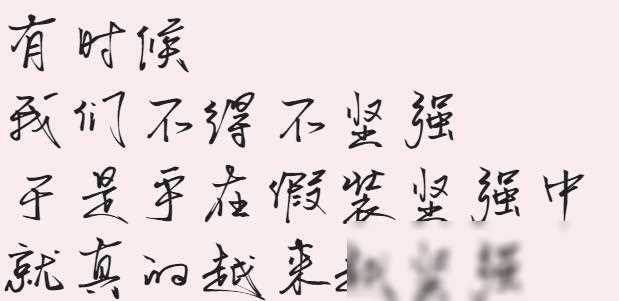 有时候
我们不得不坚强
于是乎在假装坚强中
就真的越来